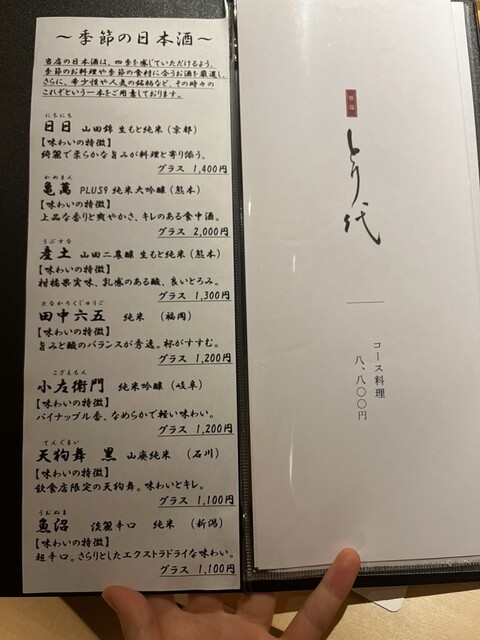 ～季節の日本酒～
当店の日本酒は、四季を感じていただけるよう、
季節のお料理や季節の食材に合うお酒を厳選し、
さらに、希少性や人気の銘柄など、その時々の
これぞという一本をご用意しております。
にちにち
日日 山田錦 生もと純米（京都）
【味わいの特徴】
綺麗で柔らかな旨みが料理と寄り添う。
グラス 1,400円
かめまん
亀萬 PLUS9 純米大吟醸（熊本）
【味わいの特徴】
上品な香りと爽やかさ、キレのある食中酒。
グラス 2,000円
うぶすな
産土 山田二農醸 生もと純米（熊本）
【味わいの特徴】
柑橘果実味、乳感のある酸、良いとろみ。
グラス 1,300円
たなかろくじゅうご
田中六五 純米 （福岡）
【味わいの特徴】
旨みと酸のバランスが秀逸。杯がすすむ。
グラス 1,200円
こざえもん
小左衛門 純米吟醸（岐阜）
【味わいの特徴】
パイナップル香、なめらかで軽い味わい。
グラス 1,200円
てんぐまい
天狗舞 黒 山廃純米 （石川）
【味わいの特徴】
飲食店限定の天狗舞。味わいとキレ。
グラス 1,100円
うおぬま
魚沼 淡麗辛口 純米 （新潟）
【味わいの特徴】
超辛口。さらりとしたエクストラドライな味わい。
グラス 1,100円
とり代
コース料理
八、八〇〇円